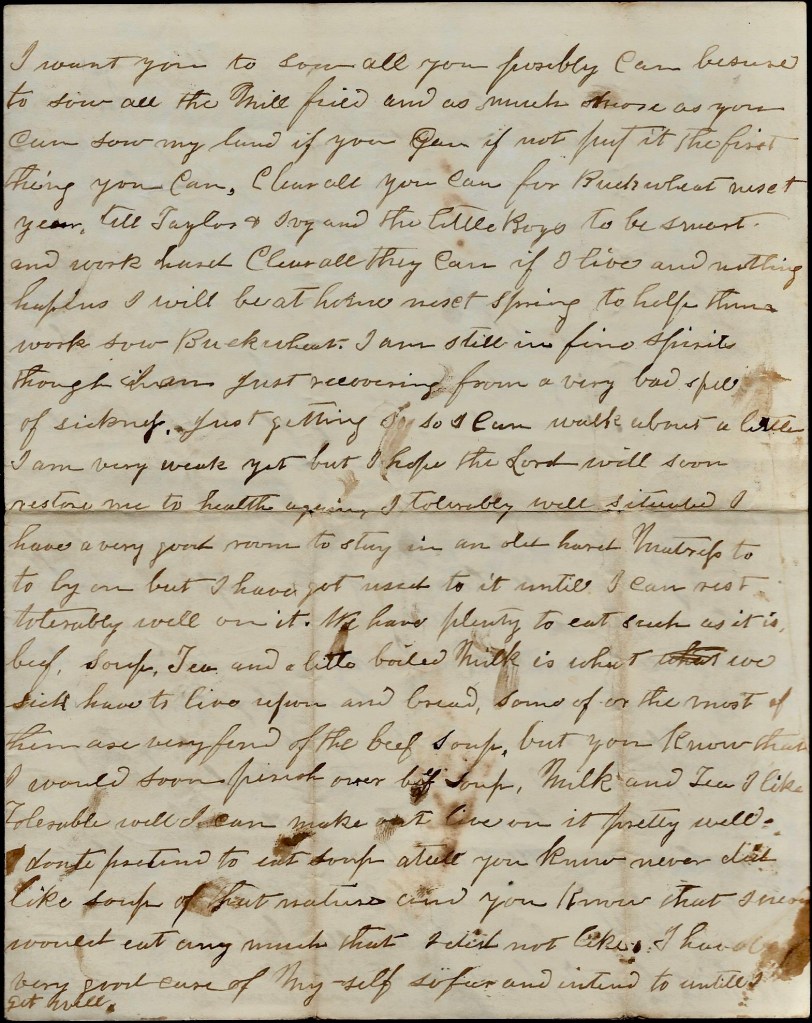 I want you to sow all you posibly Can besure
to sow all the Mill field and as much more as you
Can sow my land if you Can if not put it the first
thing you Can, Clear all you Can for Buckwheat next
year, tell Taylor & Ivy and the little Boys to be smart
and work hard Clear all they Can if I live and nothing
hapens I will be at home next spring to help them
work sow Buckwheat. I am still in fine spirits
though I am Just recovering from a very bad spell
of sickness, Just getting so I Can walk about a little
I am very weak yet but I hope the Lord will soon
restore me to health again, I tolerably well situated I
have a very good room to stay in an old hard Matress to
to ly on but I have got used to it until I can rest
tolerably well on it. We have plenty to eat such as it is,
beef, Soup, Tea and a little boiled Milk is what what we
sick have to live upon and bread, some of or the most of
them are very fond of the beef Soup, but you Know that
I would soon perish over beef Soup, Milk and Tea I like
Tolerable well I can make out live on it pretty well.
I dont pretend to eat soup atall you know never did
like soup of that nature and you Know that I never
would eat any much that I did not like. I have
very good care of My self so far and intend to untill I
get well.